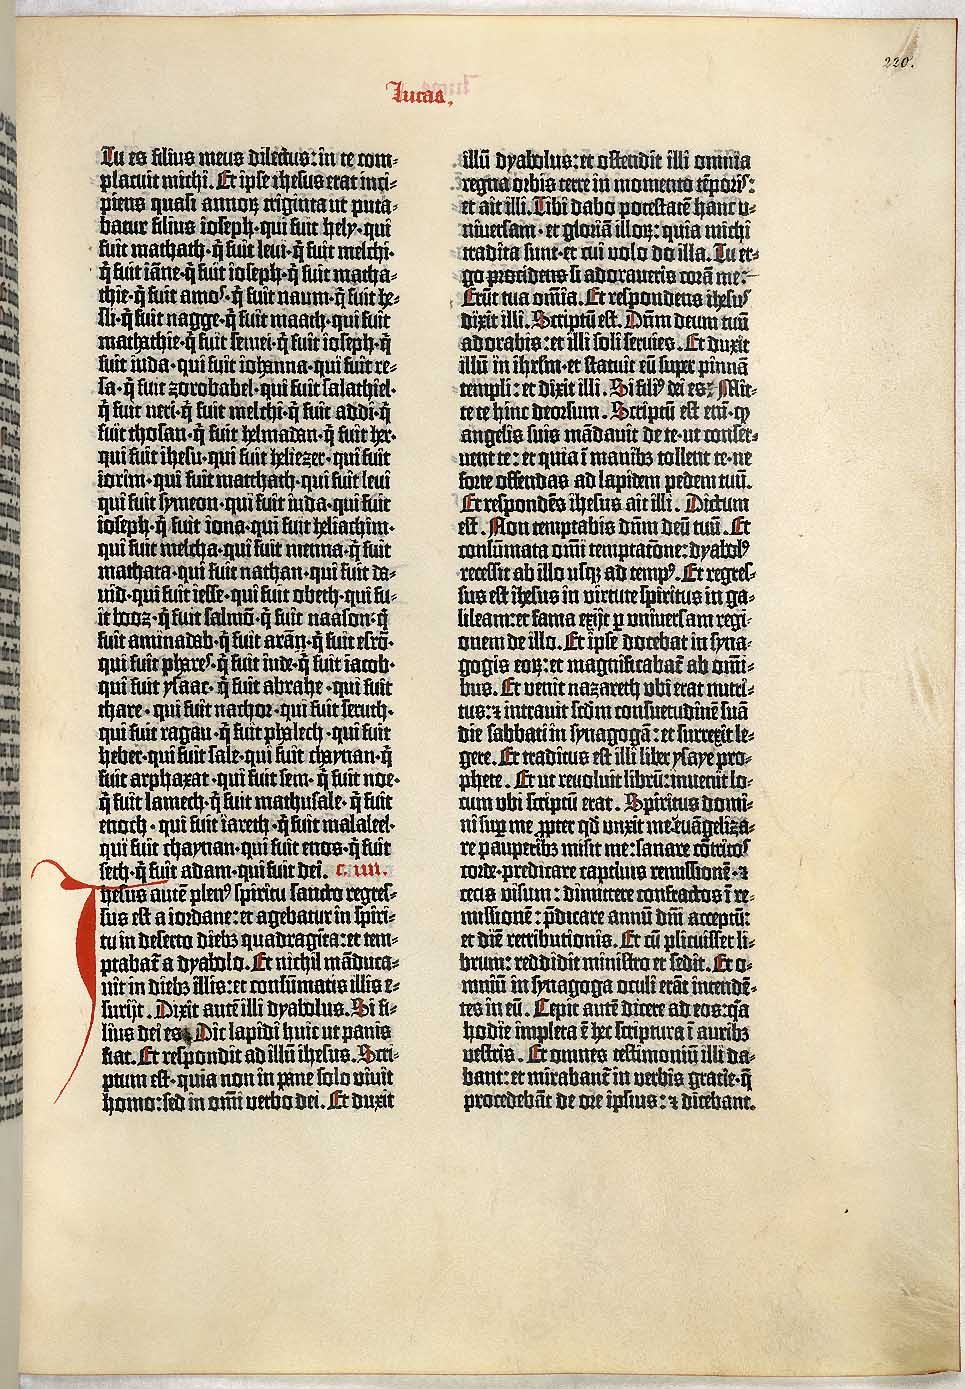 220.
Lucas.
Tu es filius meus dilectus: in te com-
placuit michi. Et ipse ihesus erat inci-
piens quasi annoꝝ triginta ut puta-
batur filius ioseph· qui fuit hely· qui
fuit mathath· q̄ fuit leui· q̄ fuit melchi·
q̄ fuit iāne· q̄ fuit ioseph· q̄ fuit matha-
thie· q̄ fuit amos· q̄ fuit naum· q̄ fuit he-
sli· q̄ fuit nagge· q̄ fuit maath· qui fuit
mathathie· q̄ fuit semei· q̄ fuit ioseph· q̄
fuit iuda· qui fuit iohanna· qui fuit re-
sa· q̄ fuit zorobabel· qui fuit salathiel·
q̄ fuit neri· q̄ fuit melchi· q̄ fuit addi· q̄
fuit chosan· q̄ fuit helmadan· q̄ fuit her·
qui fuit ihesu· qui fuit heliezer· qui fuit
iorim· qui fuit matthath· qui fuit leui
qui fuit symeon· qui fuit iuda· qui fuit
ioseph· q̄ fuit iona· qui fuit heliachim·
qui fuit melcha· qui fuit menna· q̄ fuit
mathata· qui fuit nathan· qui fuit da-
uid· qui fuit iesse· qui fuit obeth· qui fu-
it booz· q̄ fuit salmō· q̄ fuit naason· q̄
fuit aminadab· q̄ fuit arā· q̄ fuit esrō·
qui fuit phares· q̄ fuit iude· q̄ fuit iacob·
qui fuit ysaac· q̄ fuit abrahe· qui fuit
thare· qui fuit nachor· qui fuit seruch·
qui fuit ragau· q̄ fuit phalech· qui fuit
heber· qui fuit sale· qui fuit chaynan· q̄
fuit arphaxat· qui fuit sem· q̄ fuit noe·
q̄ fuit lamech· q̄ fuit mathusale· q̄ fuit
enoch· qui fuit iareth· q̄ fuit malaleel·
qui fuit chaynan· qui fuit enos· q̄ fuit
seth· q̄ fuit adam· qui fuit dei. c. iiii.
Ihesus autē plenꝰ spiritu sancto regres-
sus est a iordane: et agebatur in spiri-
tu in deserto diebꝫ quadragīta: et tem-
ptabat̄ a dyabolo. Et nichil māduca-
uit in diebꝫ illis: et consumatis illis e-
surijt. Dixit autē illi dyabolus. Si fi-
lius dei es Dic lapidi huic ut panis
fiat. Et respondit ad illū ihesus. Scri-
ptum est· quia non in pane solo viuit
homo: sed in omī verbo dei. Et duxit
illū dyabolus: et ostendit illi omnia
regna orbis terre in momento tp̄oris:
et ait illi. Tibi dabo potestatē hanc v-
niuersam· et gloriā illoꝝ: quia michi
tradita sunt· et cui volo do illa. Tu er-
go procidens si adoraueris corā me:
Erūt tua omīa. Et respondens ihesus
dixit illi. Scriptū est. Dn̄m deum tuū
adorabis: et illi soli seruies. Et duxit
illū in ihrlm̄· et statuit eū super pinnā
templi: et dixit illi. Si filiꝰ dei es: Mit-
te te hinc deorsum. Scriptū est eni· ꝙ
angelis suis mādauit de te· ut conser-
uent te: et quia ī manibꝫ tollent te· ne
forte offendas ad lapidem pedem tuū.
Et respondēs ihesus ait illi. Dictum
est. Non temptabis dn̄m deū tuū. Et
consūmata omī temptatōne: dyabolꝰ
recessit ab illo usqꝫ ad tempꝰ. Et regres-
sus est ihesus in virtute spiritus in ga-
lileam: et fama exijt ꝑ vniuersam regi-
onem de illo. Et ipse docebat in syna-
gogis eoꝝ: et magnificabat̄ ab omī-
bus. Et venit nazareth vbi erat nutri-
tus: ⁊ intrauit scd̄m consuetudinē suā
die sabbati in synagogā: et surrexit le-
gere. Et traditus est illi liber ysaye pro-
phete. Et ut reuoluit librū: inuenit lo-
cum vbi scriptū erat. Spiritus domi-
ni suꝑ me ꝓpter qd̄ vnxit me· euāgeliza-
re pauperibꝫ misit me: sanare cōtritos
corde· predicare captiuis remissionē· ⁊
cecis visum: dimittere confractos ī re-
missionē: p̄dicare annū dn̄i acceptū:
et diē retributionis. Et cū plicuisset li-
brum: reddidit ministro et sedit. Et o-
mniū in synagoga oculi erāt intendē-
tes in eū. Cepit autē dicere ad eos: q̄a
hodie impleta ē hec scriptura ī auribꝫ
vestris. Et omnes testimoniū illi da-
bant: et mirabant̄ in verbis gracie· q̄
procedebāt de ore ipsius: ⁊ dicebant.